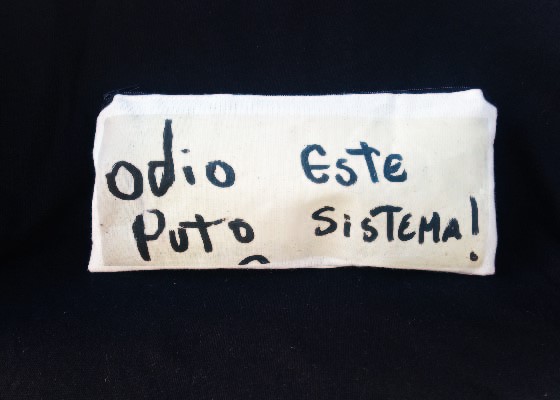 odio Este
Puto SiSTEMA!